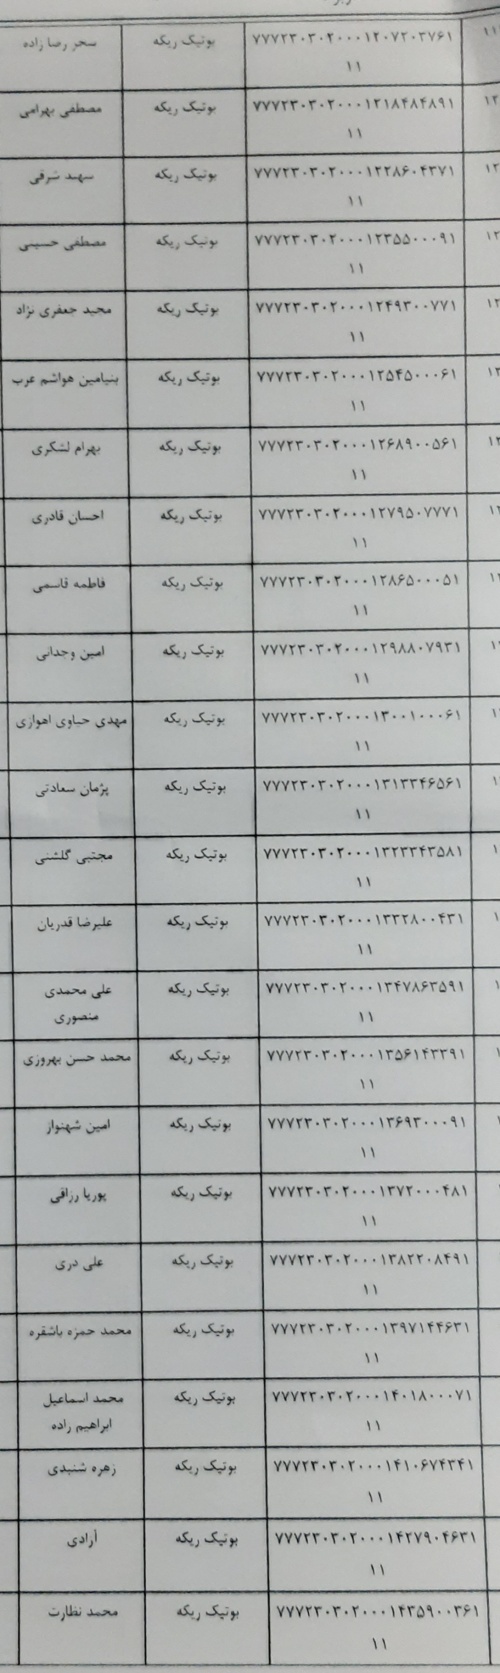 ۷۷۷۲۳۰۳۰۲۰۰۰۱۲۰۷۲۰۳۷۶۱ بوتیک ریکه سحر رضا زاده
۱۱
۷۷۷۲۳۰۳۰۲۰۰۰۱۲۱۸۴۸۴۸۹۱ بوتیک ریکه مصطفی بهرامی
۱۱
۷۷۷۲۳۰۳۰۲۰۰۰۱۲۲۸۶۰۴۳۷۱ بوتیک ریکه سهند شرفی
۱۱
۷۷۷۲۳۰۳۰۲۰۰۰۱۲۳۵۵۰۰۰۹۱ بوتیک ریکه مصطفی حسینی
۱۱
۷۷۷۲۳۰۳۰۲۰۰۰۱۲۴۹۳۰۰۷۷۱ بوتیک ریکه مجید جعفری نژاد
۱۱
۷۷۷۲۳۰۳۰۲۰۰۰۱۲۵۴۵۰۰۰۶۱ بوتیک ریکه بنیامین هواشم عرب
۱۱
۷۷۷۲۳۰۳۰۲۰۰۰۱۲۶۸۹۰۰۵۶۱ بوتیک ریکه بهرام لشکری
۱۱
۷۷۷۲۳۰۳۰۲۰۰۰۱۲۷۹۵۰۷۷۷۱ بوتیک ریکه احسان قادری
۱۱
۷۷۷۲۳۰۳۰۲۰۰۰۱۲۸۶۵۰۰۰۵۱ بوتیک ریکه فاطمه قاسمی
۱۱
۷۷۷۲۳۰۳۰۲۰۰۰۱۲۹۸۸۰۷۹۳۱ بوتیک ریکه امین وجدانی
۱۱
۷۷۷۲۳۰۳۰۲۰۰۰۱۳۰۰۱۰۰۰۶۱ بوتیک ریکه مهدی حیاوی اهوازی
۱۱
۷۷۷۲۳۰۳۰۲۰۰۰۱۳۱۳۳۴۶۵۶۱ بوتیک ریکه پژمان سعادتی
۱۱
۷۷۷۲۳۰۳۰۲۰۰۰۱۳۲۳۳۴۳۵۸۱ بوتیک ریکه مجتبی گلشنی
۱۱
۷۷۷۲۳۰۳۰۲۰۰۰۱۳۳۲۸۰۰۴۳۱ بوتیک ریکه علیرضا قدریان
۱۱
۷۷۷۲۳۰۳۰۲۰۰۰۱۳۴۷۸۶۳۵۹۱ بوتیک ریکه علی محمدی
۱۱ منصوری
۷۷۷۲۳۰۳۰۲۰۰۰۱۳۵۶۱۴۳۳۹۱ بوتیک ریکه محمد حسن بهروزی
۱۱
۷۷۷۲۳۰۳۰۲۰۰۰۱۳۶۹۳۰۰۰۹۱ بوتیک ریکه امین شهنواز
۱۱
۷۷۷۲۳۰۳۰۲۰۰۰۱۳۷۲۰۰۰۴۸۱ بوتیک ریکه پوریا رزاقی
۱۱
۷۷۷۲۳۰۳۰۲۰۰۰۱۳۸۲۲۰۸۴۹۱ بوتیک ریکه علی دری
۱۱
۷۷۷۲۳۰۳۰۲۰۰۰۱۳۹۷۱۴۴۶۳۱ بوتیک ریکه محمد حمزه باشقره
۱۱
۷۷۷۲۳۰۳۰۲۰۰۰۱۴۰۱۸۰۰۰۷۱ بوتیک ریکه محمد اسماعیل
۱۱ ابراهیم زاده
۷۷۷۲۳۰۳۰۲۰۰۰۱۴۱۰۶۷۴۳۴۱ بوتیک ریکه زهره شنبدی
۱۱
۷۷۷۲۳۰۳۰۲۰۰۰۱۴۲۷۹۰۴۶۳۱ بوتیک ریکه آرادی
۱۱
۷۷۷۲۳۰۳۰۲۰۰۰۱۴۳۵۹۰۰۳۶۱ بوتیک ریکه محمد نظارت
۱۱